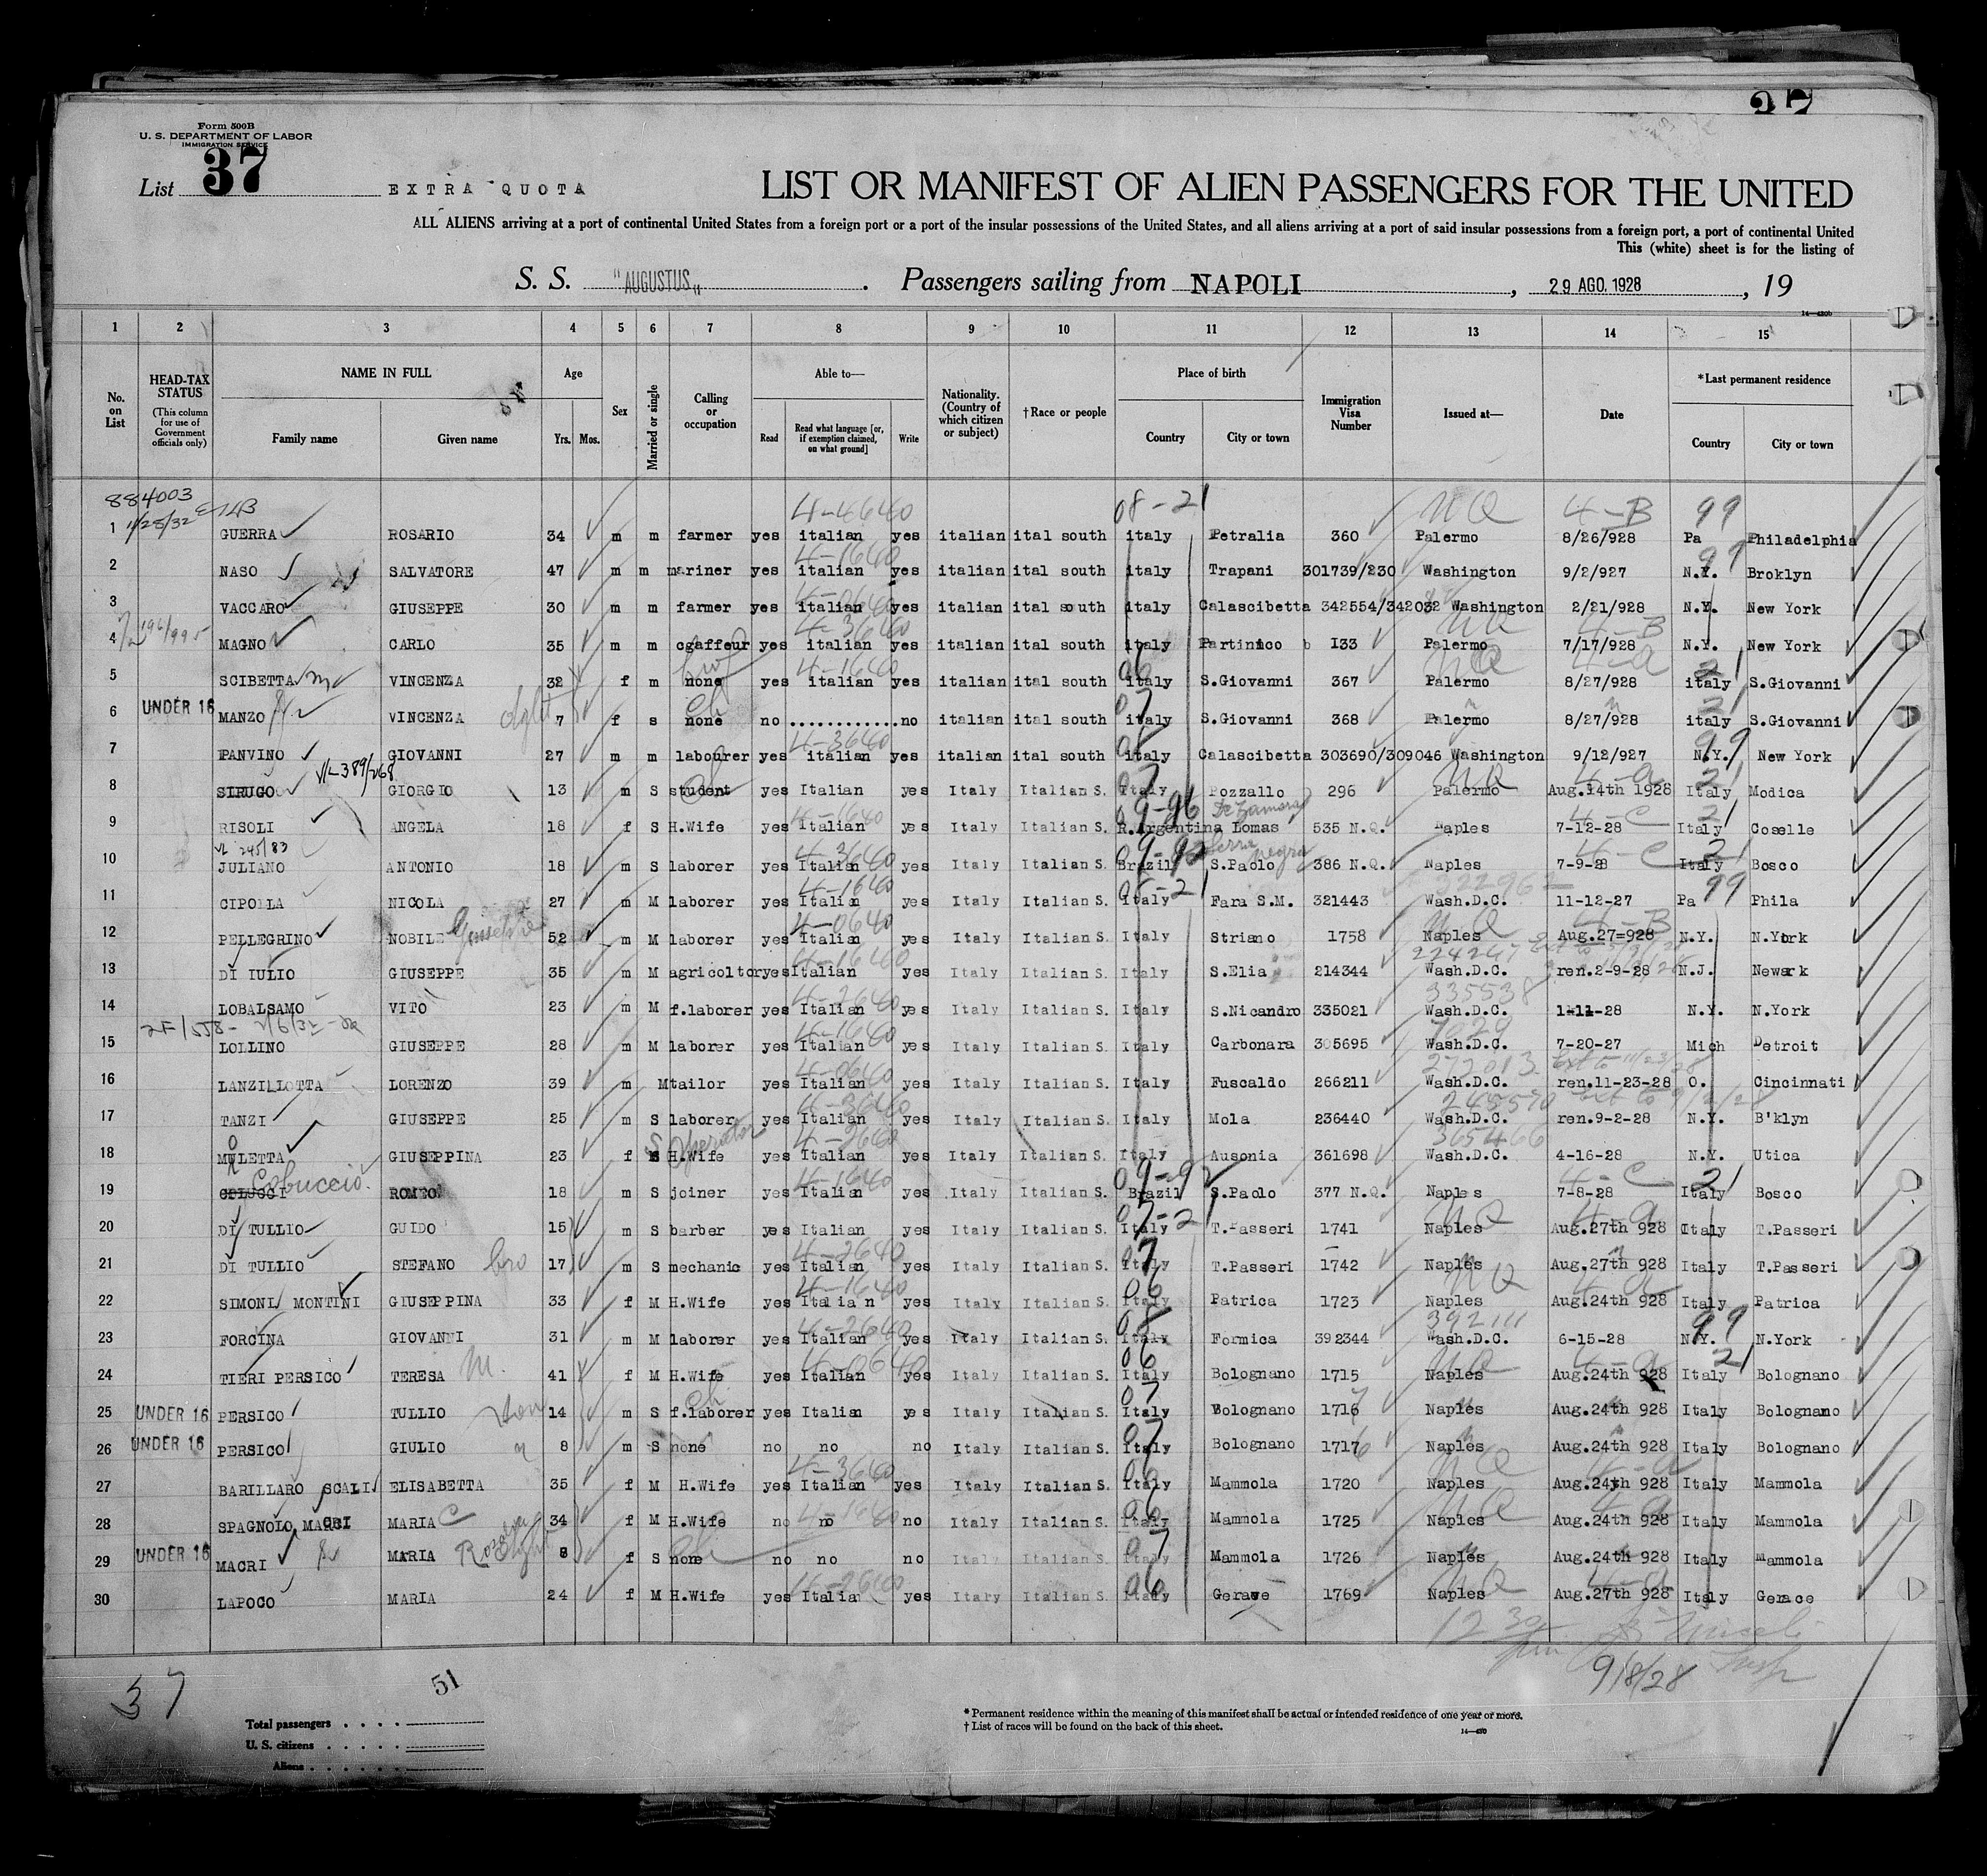 37
Form 500B
U. S. DEPARTMENT OF LABOR
IMMIGRATION SERVICE
List 37 EXTRA QUOTA
LIST OR MANIFEST OF ALIEN PASSENGERS FOR THE UNITED
ALL ALIENS arriving at a port of continental United States from a foreign port or a port of the insular possessions of the United States, and all aliens arriving at a port of said insular possessions from a foreign port, a port of continental United
This (white) sheet is for the listing of
S. S. "AUGUSTUS" . Passengers sailing from NAPOLI , 29 AGO. 1928 , 19
14—430b
1 2 3 4 5 6 7 8 9 10 11 12 13 14 15
No. on List
HEAD-TAX STATUS (This column for use of Government officials only)
NAME IN FULL Family name Given name
Age Yrs. Mos.
Sex
Married or single
Calling or occupation
Able to— Read Read what language [or, if exemption claimed, on what ground] Write
Nationality. (Country of which citizen or subject)
†Race or people
Place of birth Country City or town
Immigration Visa Number
Issued at—
Date
*Last permanent residence Country City or town
884003
11/28/32 4-4640 08-21 NQ 4-B 99
1 GUERRA ROSARIO 34 m m farmer yes italian yes italian ital south italy Petralia 360 Palermo 8/26/928 Pa Philadelphia
4-1640 99
2 NASO SALVATORE 47 m m mariner yes italian yes italian ital south italy Trapani 301739/230 Washington 9/2/927 N.Y. Broklyn
3 VACCARO GIUSEPPE 30 m m farmer yes italian yes italian ital south italy Calascibetta 342554/342032 Washington 2/21/928 N.Y. New York
4-3640 NQ 4-B
4 MAGNO CARLO 35 m m cgaffeur yes italian yes italian ital south italy Partinico 133 Palermo 7/17/928 N.Y. New York
4-1640 06 NQ 4-a 21
5 SCIBETTA VINCENZA 32 f m none yes italian yes italian ital south italy S.Giovanni 367 Palermo 8/27/928 italy S.Giovanni
6 UNDER 16 MANZO VINCENZA dght 7 f s none no ............ no italian ital south italy S.Giovanni 368 Palermo 8/27/928 italy S.Giovanni
4-3640 99
7 PANVINO GIOVANNI 27 m m labourer yes italian yes italian ital south italy Calascibetta 303690/309046 Washington 9/12/927 N.Y. New York
07 NQ 4-a 21
8 SIRUGO GIORGIO 13 m S student yes Italian yes Italy Italian S. Italy Pozzallo 296 Palermo Aug.14th 1928 Italy Modica
4-1640 09-96 4-C 21
9 RISOLI ANGELA 18 f S H.Wife yes Italian yes Italy Italian S. R.Argentina Lomas 535 N.Q. Naples 7-12-28 Italy Coselle
4-3640 09-92 negra 4-C 21
10 JULIANO ANTONIO 18 m S laborer yes Italian yes Italy Italian S. Brazil S.Paolo 386 N.Q. Naples 7-9-28 Italy Bosco
4-1640 99
11 CIPOLLA NICOLA 27 m M laborer yes Italian yes Italy Italian S. Italy Fara S.M. 321443 Wash.D.C. 11-12-27 Pa Phila
4-0640 NQ 4-B
12 PELLEGRINO NOBILE Giuseppe 52 m M laborer yes Italian yes Italy Italian S. Italy Striano 1758 Naples Aug.27=928 N.Y. N.York
4-1640
13 DI IULIO GIUSEPPE 35 m M agricoltor yes Italian yes Italy Italian S. Italy S.Elia 214344 Wash.D.C. ren.2-9-28 N.J. Newark
4-2640 335538
14 LOBALSAMO VITO 23 m M f.laborer yes Italian yes Italy Italian S. Italy S.Nicandro 335021 Wash.D.C. 1-11-28 N.Y. N.York
4-1640
15 LOLLINO GIUSEPPE 28 m M laborer yes Italian yes Italy Italian S. Italy Carbonara 305695 Wash.D.C. 7-20-27 Mich Detroit
4-0640 272013
16 LANZILLOTTA LORENZO 39 m M tailor yes Italian yes Italy Italian S. Italy Fuscaldo 266211 Wash.D.C. ren.11-23-28 O. Cincinnati
4-3640 245570
17 TANZI GIUSEPPE 25 m S laborer yes Italian yes Italy Italian S. Italy Mola 236440 Wash.D.C. ren.9-2-28 N.Y. B'klyn
Operator 4-2640 365466
18 MULETTA GIUSEPPINA 23 f S H.Wife yes Italian yes Italy Italian S. Italy Ausonia 361698 Wash.D.C. 4-16-28 N.Y. Utica
Cobuccio 4-1640 09-92 4-C 21
19 ROMEO 18 m S joiner yes Italian yes Italy Italian S. Brazil S.Paolo 377 N.Q. Naples 7-8-28 Italy Bosco
07-21 NQ 4-a
20 DI TULLIO GUIDO 15 m S barber yes Italian yes Italy Italian S. Italy T.Passeri 1741 Naples Aug.27th 928 Italy T.Passeri
4-2640 07
21 DI TULLIO STEFANO bro 17 m S mechanic yes Italian yes Italy Italian S. Italy T.Passeri 1742 Naples Aug.27th 928 Italy T.Passeri
4-1640 06 NQ 4-a
22 SIMONI MONTINI GIUSEPPINA 33 f M H.Wife yes Italian yes Italy Italian S. Italy Patrica 1723 Naples Aug.24th 928 Italy Patrica
4-2640 08 392111 99
23 FORCINA GIOVANNI 31 m M laborer yes Italian yes Italy Italian S. Italy Formica 392344 Wash.D.C. 6-15-28 N.Y. N.York
4-0640 06 NQ 4-a 21
24 TIERI PERSICO TERESA m. 41 f M H.Wife yes Italian yes Italy Italian S. Italy Bolognano 1715 Naples Aug.24th 928 Italy Bolognano
07
25 UNDER 16 PERSICO TULLIO son 14 m S f.laborer yes Italian yes Italy Italian S. Italy Bolognano 1716 Naples Aug.24th 928 Italy Bolognano
07
26 UNDER 16 PERSICO GIULIO 8 m S none no no no Italy Italian S. Italy Bolognano 1717 Naples Aug.24th 928 Italy Bolognano
4-3640 06 NQ 4-a
27 BARILLARO SCALI ELISABETTA 35 f M H.Wife yes Italian yes Italy Italian S. Italy Mammola 1720 Naples Aug.24th 928 Italy Mammola
4-1640 06 NQ 4-a
28 SPAGNOLO MACRI MARIA C 34 f M H.Wife no no no Italy Italian S. Italy Mammola 1725 Naples Aug.24th 928 Italy Mammola
07
29 UNDER 16 MACRI MARIA dght 8 f S none no no no Italy Italian S. Italy Mammola 1726 Naples Aug.24th 928 Italy Mammola
4-2640 06 NQ 4-a
30 LAPOCO MARIA 24 f M H.Wife yes Italian yes Italy Italian S. Italy Gerace 1769 Naples Aug.27th 928 Italy Gerace
12 30
9/8/28 Insp
37
51
Total passengers . . . .
U. S. citizens . . . . .
Aliens . . . . . .
* Permanent residence within the meaning of this manifest shall be actual or intended residence of one year or more.
† List of races will be found on the back of this sheet.
14—430